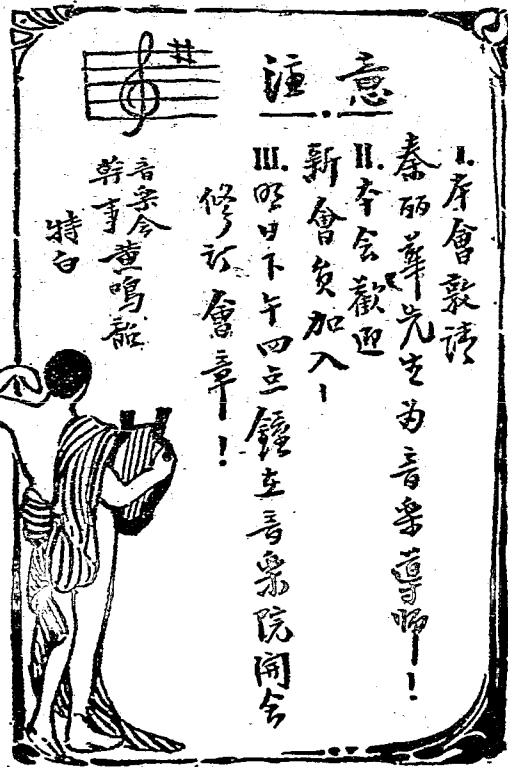 注意
I.本會敦請
秦丽華先生为音樂導师!
II.本会歡迎
新會員加入!
III.明日下午四点鐘在音樂院開会
修訂會章!
音樂会
幹事黄鳴韶
特白